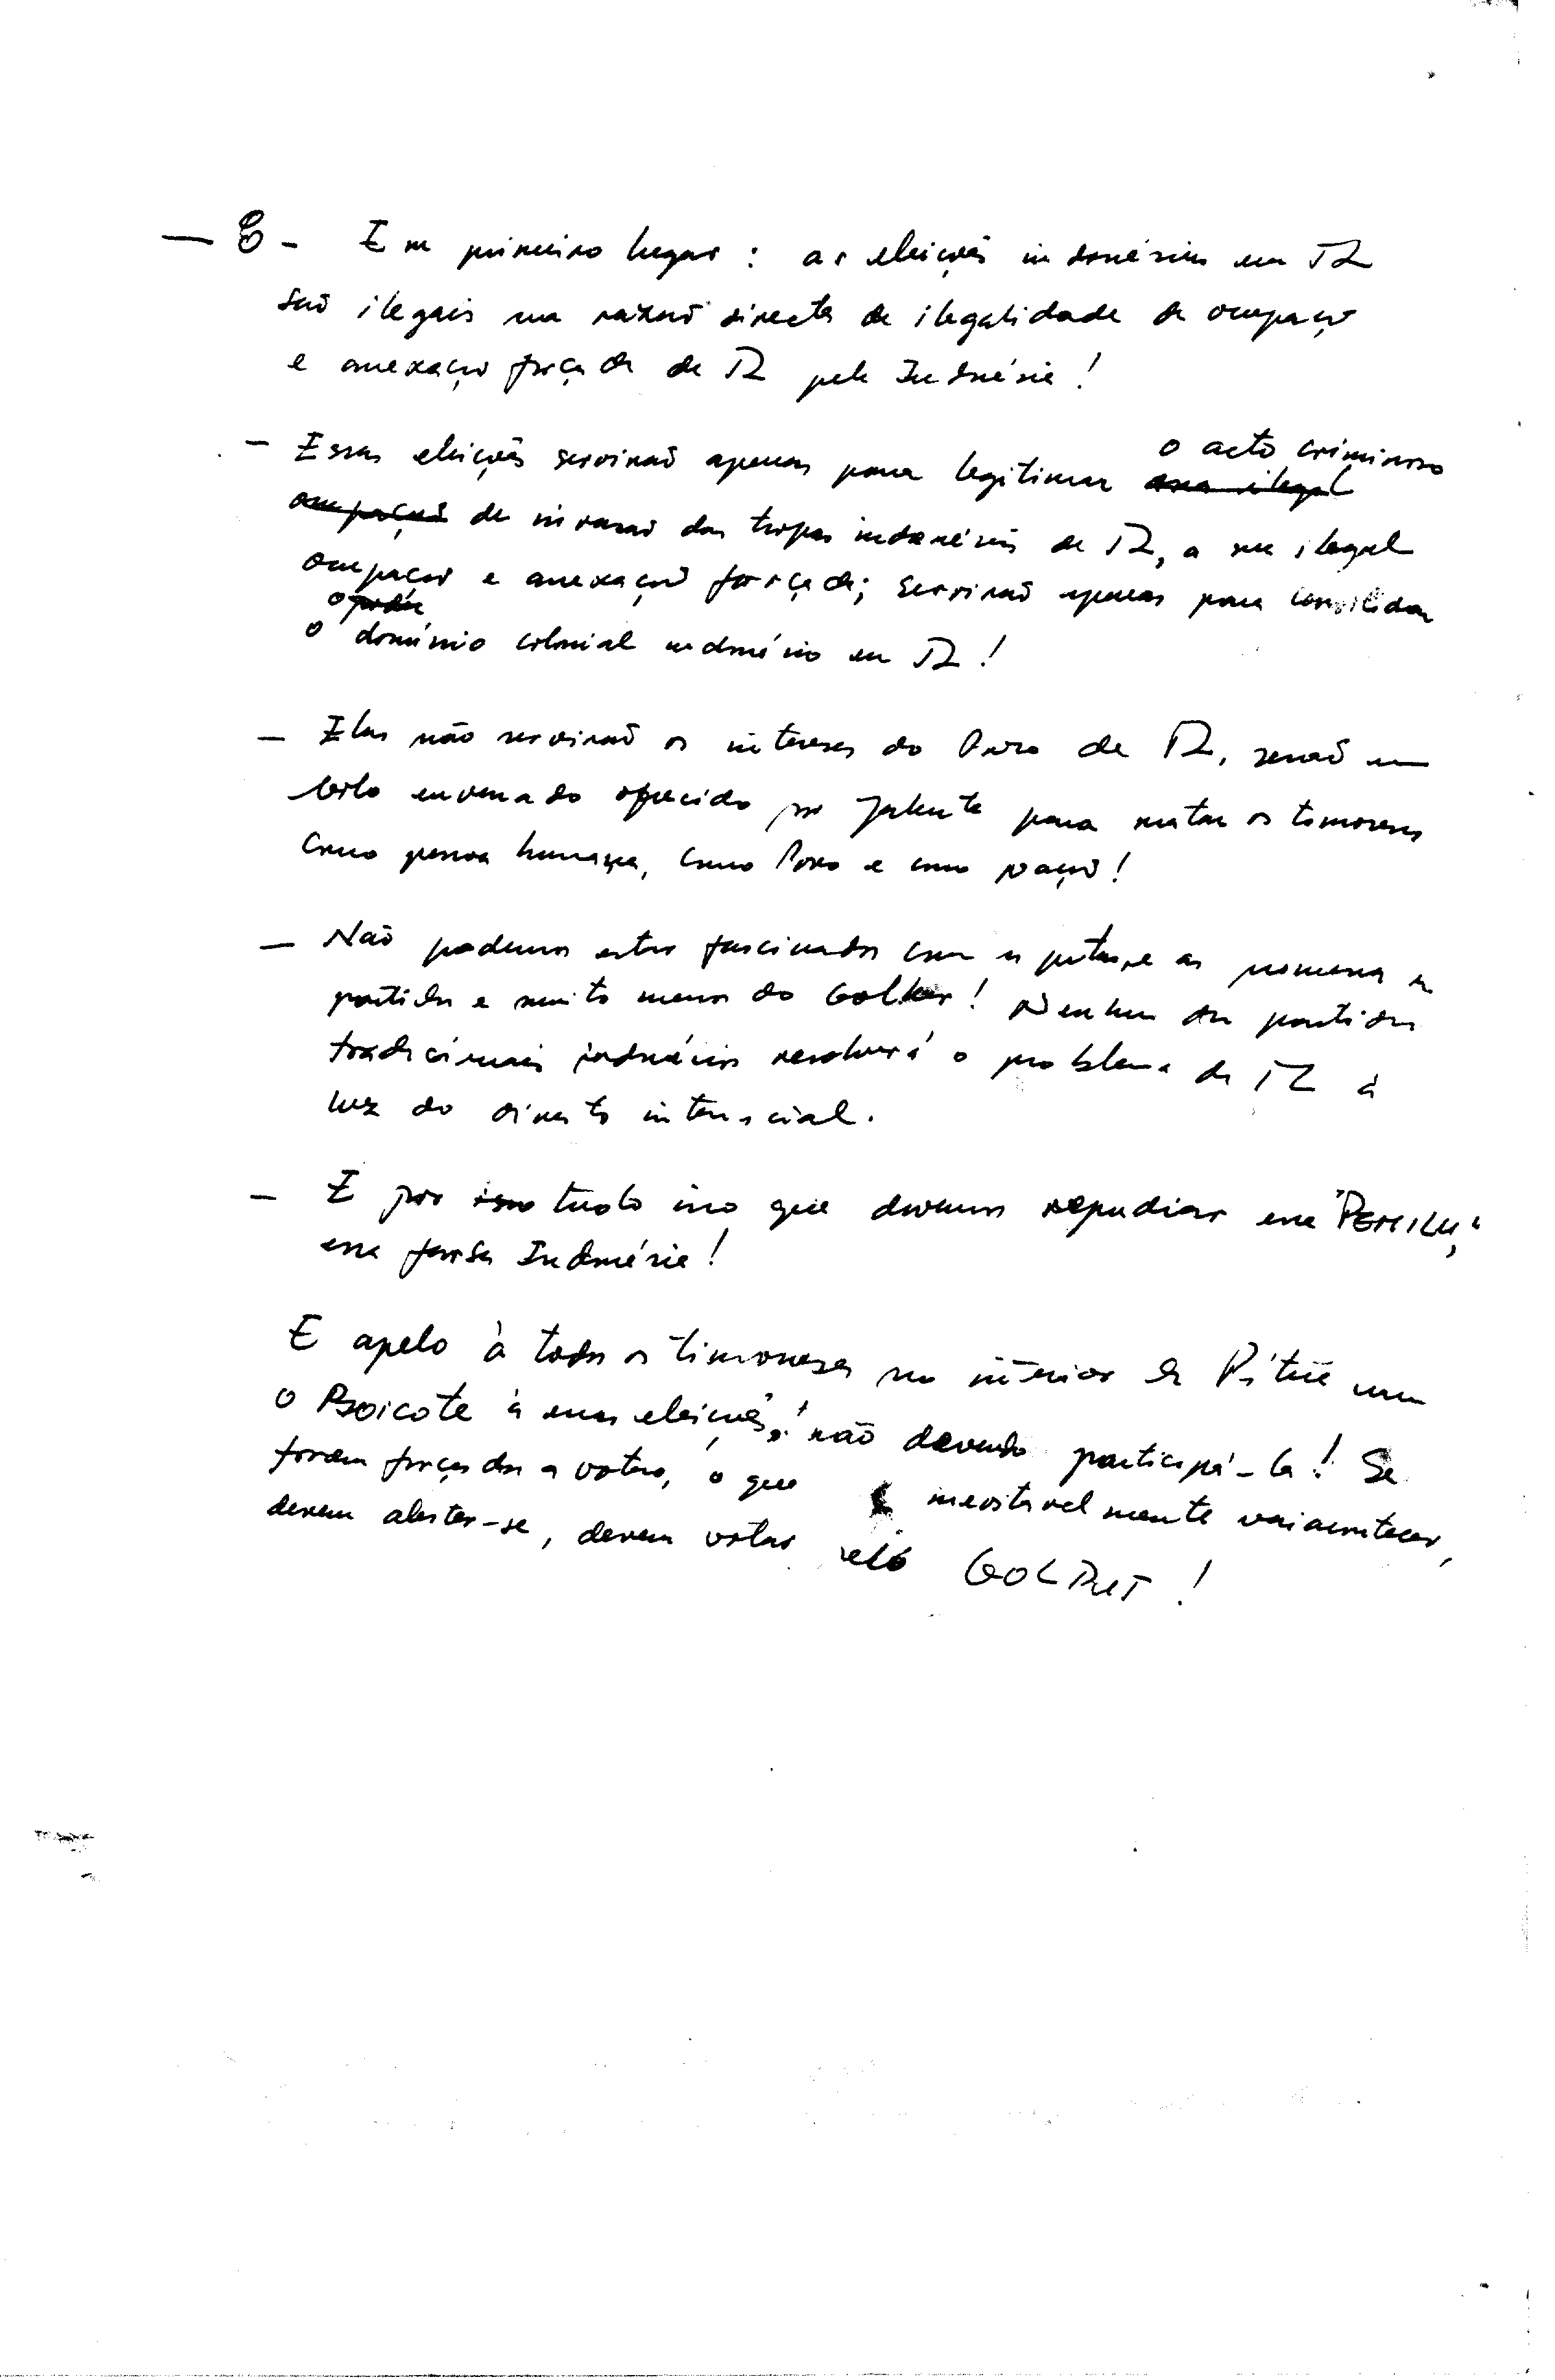 — 6 - Em primeiro lugar : as eleições indonésias em TL
são ilegais na razão directa da ilegalidade da ocupação
e anexação forçada de TL pela Indonésia!
- Essas eleições servirão apenas para legitimar o acto criminoso
essa ilegal
ocupação de invasão das tropas indonésias de TL, a sua ilegal
ocupação e anexação forçada; servirão apenas para consolidar
o poder
o domínio colonial indonésio em TL!
- Elas não servirão os interesses do Povo de TL, serão um
bolo envenenado oferecido por Jakarta para matar os timorenses
como pessoa humana, como Povo e como nação!
- Não podemos estar fascinados com as promessas
partidos e muito menos do Golkar! Nenhum dos partidos
tradicionais indonésios resolverá o problema de TL à
luz do direito internacial.
- E por isso tudo isso que devemos repudiar essa "PEMILU",
essa farsa Indonésia!
E apelo à todos os timorenses no interior da Pátria
o Boicote à essas eleições! não devendo participá-la! Se
forem forçados a votar, o que inevitavelmente vai acontecer,
devem abster-se, devem votar pelo GOLPUT!